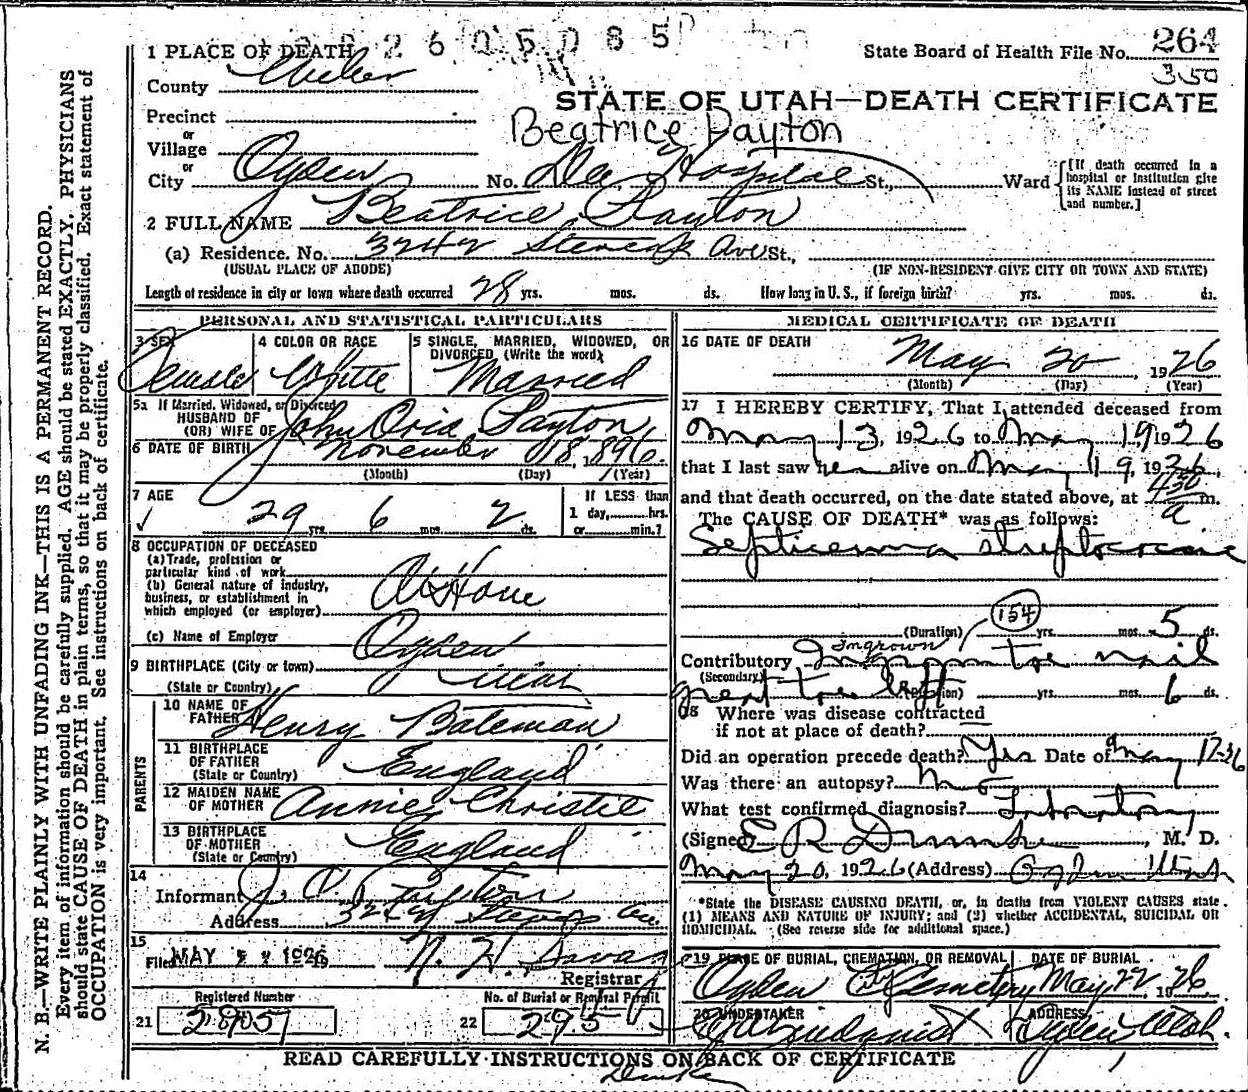 N. B.—WRITE PLAINLY WITH UNFADING INK—THIS IS A PERMANENT RECORD.
Every item of information should be carefully supplied. AGE should be stated EXACTLY. PHYSICIANS
should state CAUSE OF DEATH in plain terms, so that it may be properly classified. Exact statement of
OCCUPATION is very important. See instructions on back of certificate.
2605085
1 PLACE OF DEATH
State Board of Health File No. 264
350
County Weber
STATE OF UTAH—DEATH CERTIFICATE
Precinct
Beatrice Payton
or
Village
or
City Ogden No. Dee Hospital St., Ward
[If death occurred in a
hospital or institution give
its NAME instead of street
and number.]
2 FULL NAME Beatrice Payton
(a) Residence. No. 3242 Stevens Ave St.,
(USUAL PLACE OF ABODE) (IF NON-RESIDENT GIVE CITY OR TOWN AND STATE)
Length of residence in city or town where death occurred 28 yrs. mos. ds. How long in U. S., if foreign birth? yrs. mos. ds.
PERSONAL AND STATISTICAL PARTICULARS
3 SEX
Female
4 COLOR OR RACE
White
5 SINGLE, MARRIED, WIDOWED, OR
DIVORCED (Write the word)
Married
5a If Married, Widowed, or Divorced
HUSBAND OF
(OR) WIFE OF John Payton
6 DATE OF BIRTH November 18, 1896
(Month) (Day) (Year)
7 AGE
29 yrs. 6 mos. 2 ds.
If LESS than
1 day, hrs.
or min.?
8 OCCUPATION OF DECEASED
(a) Trade, profession or
particular kind of work
(b) General nature of industry,
business, or establishment in
which employed (or employer)
At Home
(c) Name of Employer
9 BIRTHPLACE (City or town) Ogden
(State or Country) Utah
PARENTS
10 NAME OF
FATHER Henry Bateman
11 BIRTHPLACE
OF FATHER
(State or Country) England
12 MAIDEN NAME
OF MOTHER Annie Christie
13 BIRTHPLACE
OF MOTHER
(State or Country) England
14
Informant J. O. Payton
Address 3242 Stevens Ave
15
Filed MAY 1926
Registrar
Registered Number
21
No. of Burial or Removal Permit
22 295
MEDICAL CERTIFICATE OF DEATH
16 DATE OF DEATH
May 20, 1926
(Month) (Day) (Year)
17 I HEREBY CERTIFY, That I attended deceased from
May 13, 1926 to May 19 1926
that I last saw her alive on May 19, 1926,
and that death occurred, on the date stated above, at 450 a m.
The CAUSE OF DEATH* was as follows:
Septicemia streptococcic
154
(Duration) yrs. mos. 5 ds.
Ingrown
Contributory Ingrown toe nail
(Secondary)
great toe left (Duration) yrs. mos. 6 ds.
18 Where was disease contracted
if not at place of death?
Did an operation precede death? Yes Date of May 17-26
Was there an autopsy? No
What test confirmed diagnosis? Laboratory
(Signed) E R Dumke, M. D.
May 20, 1926 (Address) Ogden Utah
*State the DISEASE CAUSING DEATH, or, in deaths from VIOLENT CAUSES state
(1) MEANS AND NATURE OF INJURY; and (2) whether ACCIDENTAL, SUICIDAL OR
HOMICIDAL. (See reverse side for additional space.)
19 PLACE OF BURIAL, CREMATION, OR REMOVAL
Ogden City Cemetery
DATE OF BURIAL
May 22, 1926
20 UNDERTAKER
ADDRESS
Ogden Utah
READ CAREFULLY INSTRUCTIONS ON BACK OF CERTIFICATE
Dumke